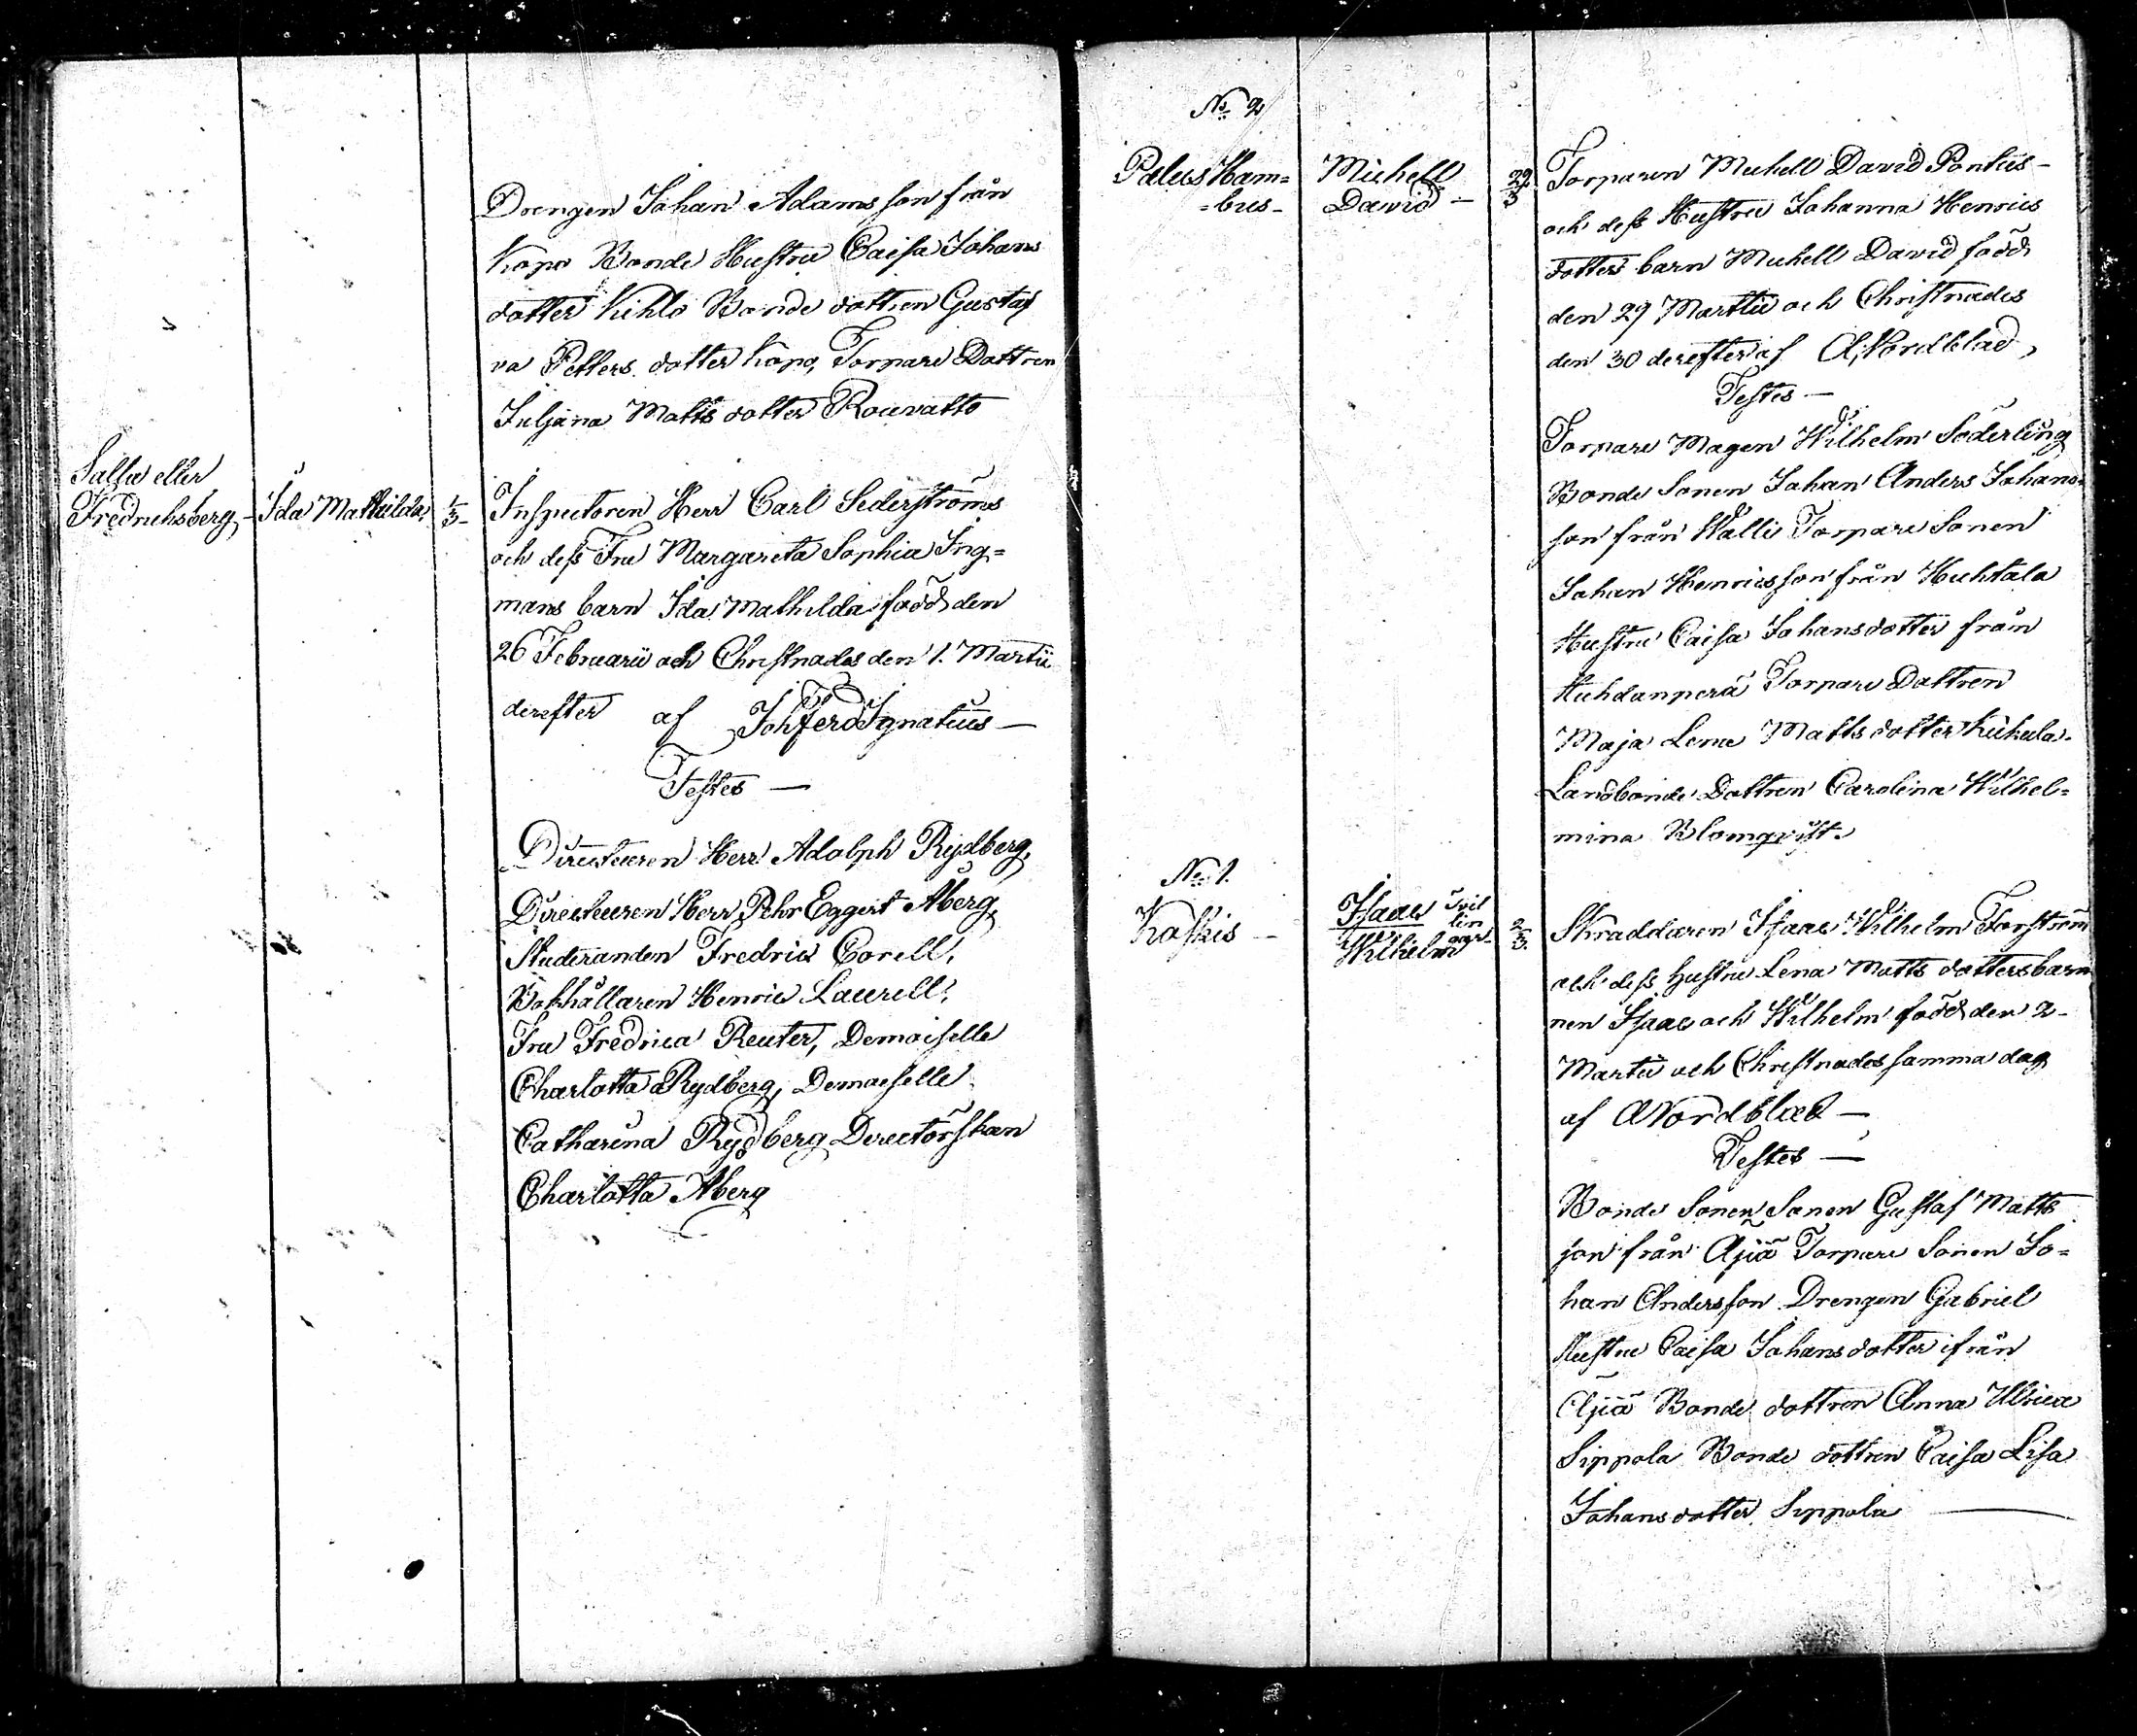 Drengen Johan Adamsson från
Köpo Bonde Hustru Caisa Johans
dotter Kihlo Bonde dottren Gustaf
va Petters dotter Köpo, Torpare Dottren
Juljana Matts dotter Rouvatto
Salla eller
Fredrichsberg - Ida Mathilda, 1/3 -
Inspectoren Herr Carl Sederströms
och dess Fru Margareta Sophia Ing=
mans barn Ida Mathilda född den
26 Februarii och Christnades den 1. Martii
derefter af Joh Ferd Ignatius —
Testes —
Directeuren Herr Adolph Rydberg,
Directeuren Herr Pehr Eggert Åberg,
Studeranden Fredric Corell,
Bokhållaren Henric Laurell,
Fru Fredrica Reuter, Demoiselle
Charlotta Rydberg, Demoiselle
Catharina Rydberg Directörskan
Charlotta Åberg
No 2
Palus Ham=
=bus -
Michell
David —
29/3
Torparen Michell David Pontus -
och dess Hustru Johanna Henrics
dotters barn Michell David född
den 29 Martii och Christnades
den 30 derefter af A, Nordblad,
Testes —
Torpare Magen Wilhelm Söderling
Bonde Sonen Johan Anders Johans
son från Walli Torpare Sonen
Johan Henricsson från Huhtala
Hustru Caisa Johansdotter från
Huhdanperä Torpare Dottren
Maja Lena Matts dotter
Landbonde Dottren Carolina Wilhel=
mina Blomqvist.
No 1.
Koskis —
Isaac
Wilhelm
Tvil
lin
gar -
2/3.
Skraddaren Isaac Wilhelm Forström
och dess hustru Lena Matts dotters barn
nen Isaac och Wilhelm född den 2 -
Martii och Christnades samma dag
af A Nordblad —
Testes —
Bonde Sonen Sonen Gustaf Matts
son från Äjiä Torpare Sonen Jo=
han Andersson Drengen Gabriel
Hustru Caisa Johans dotter ifrån
Äjiä Bonde dottren Anna Ulrica
Sippola Bonde dottren Caisa Lisa
Johans dotter Sippola —